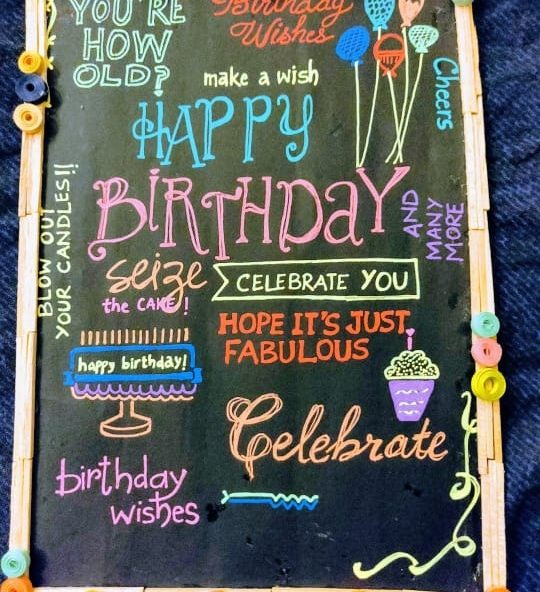 YOU'RE
HOW
OLD?
Birthday
Wishes
make a wish
Cheers
HAPPY
BiRTHDaY
AND
MANY
MORE
BLOW OUT
YOUR CANDLES!!
seize
the CAKE!
CELEBRATE YOU
HOPE IT'S JUST
FABULOUS
happy birthday!
Celebrate
birthday
wishes